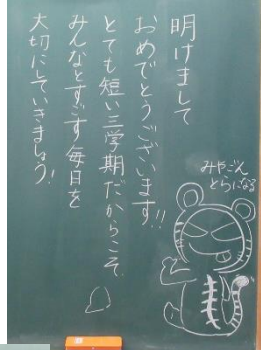 明けまして
おめでとうございます!!
とても短い三学期だからこそ、
みんなとすごす毎日を
大切にしていきましょう!
みやごん
とらになる